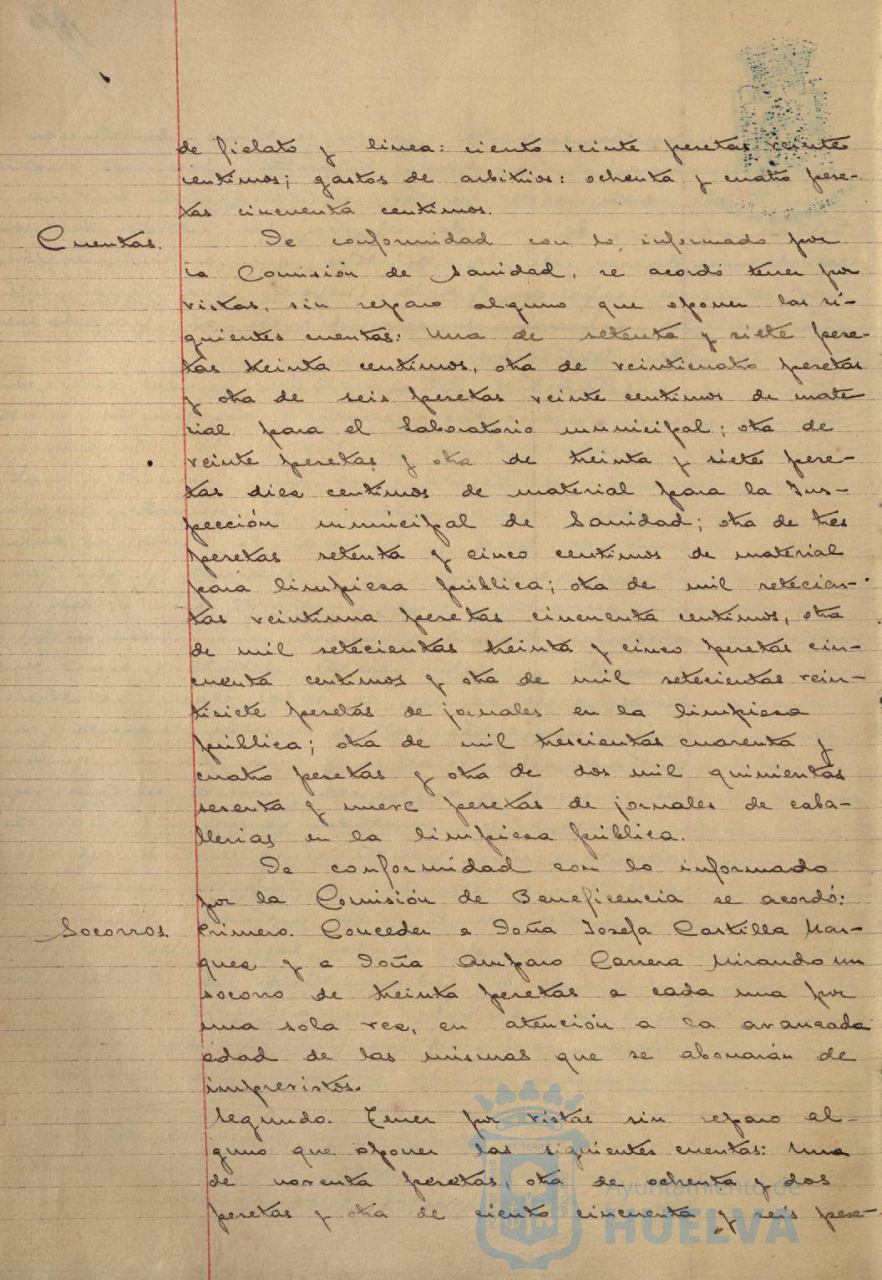 de fielato y linea: ciento veinte pesetas veinte
centimos; gastos de arbitrios: ochenta y cuatro pese-
tas cincuenta centimos.
Cuentas. De conformidad con lo informado por
la Comisión de Sanidad, se acordó tener por
vistas, sin reparo alguno que oponer las si-
guientes cuentas: Una de setenta y siete pese-
tas treinta centimos, otra de veinticuatro pesetas
y otra de seis pesetas veinte centimos de mate
rial para el Laboratorio municipal; otra de
veinte pesetas y otra de treinta y siete pese-
tas diez centimos de material para la Ins-
pección municipal de Sanidad; otra de tres
pesetas setenta y cinco centimos de material
para limpieza pública; otra de mil setecien-
tas veintiuna pesetas cincuenta centimos, otra
de mil setecientas treinta y cinco pesetas cin-
cuenta centimos y otra de mil setecientas vein-
tisiete pesetas de jornales en la limpieza
pública; otra de mil trescientas cuarenta y
cuatro pesetas y otra de dos mil quinientas
sesenta y nueve pesetas de jornales de caba-
llerias en la limpieza pública.
De conformidad con lo informado
por la Comisión de Beneficencia se acordó:
Socorros. Primero. Conceder a Doña Josefa Castilla Mar-
quez y a Doña Amparo Carrera Mirando un
socorro de treinta pesetas a cada una por
una sola vez, en atención a la avanzada
edad de las mismas que se abonarán de
imprevistos.
Segundo. Tener por vistas sin reparo al-
guno que oponer las siguientes cuentas: Una
de noventa pesetas, otra de ochenta y dos
pesetas y otra de ciento cincuenta y seis pese-
Ayuntamiento de
HUELVA